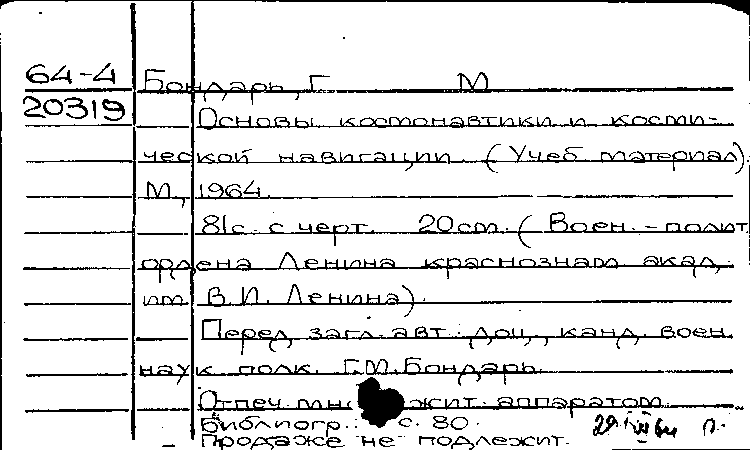 64-4 Бондарь, Г М
20319 Основы космонавтики и косми-
ческой навигации. (Учеб материал).
М., 1964.
81с. с черт. 20см. (Воен.-полит
ордена Ленина краснознам акад.
им В.И. Ленина).
Перед загл. авт.: Доц., канд. воен.
наук полк. Г.М. Бондарь.
Отпеч. аппаратом.
Библиогр.: с. 80.
Продаже не подлежит.